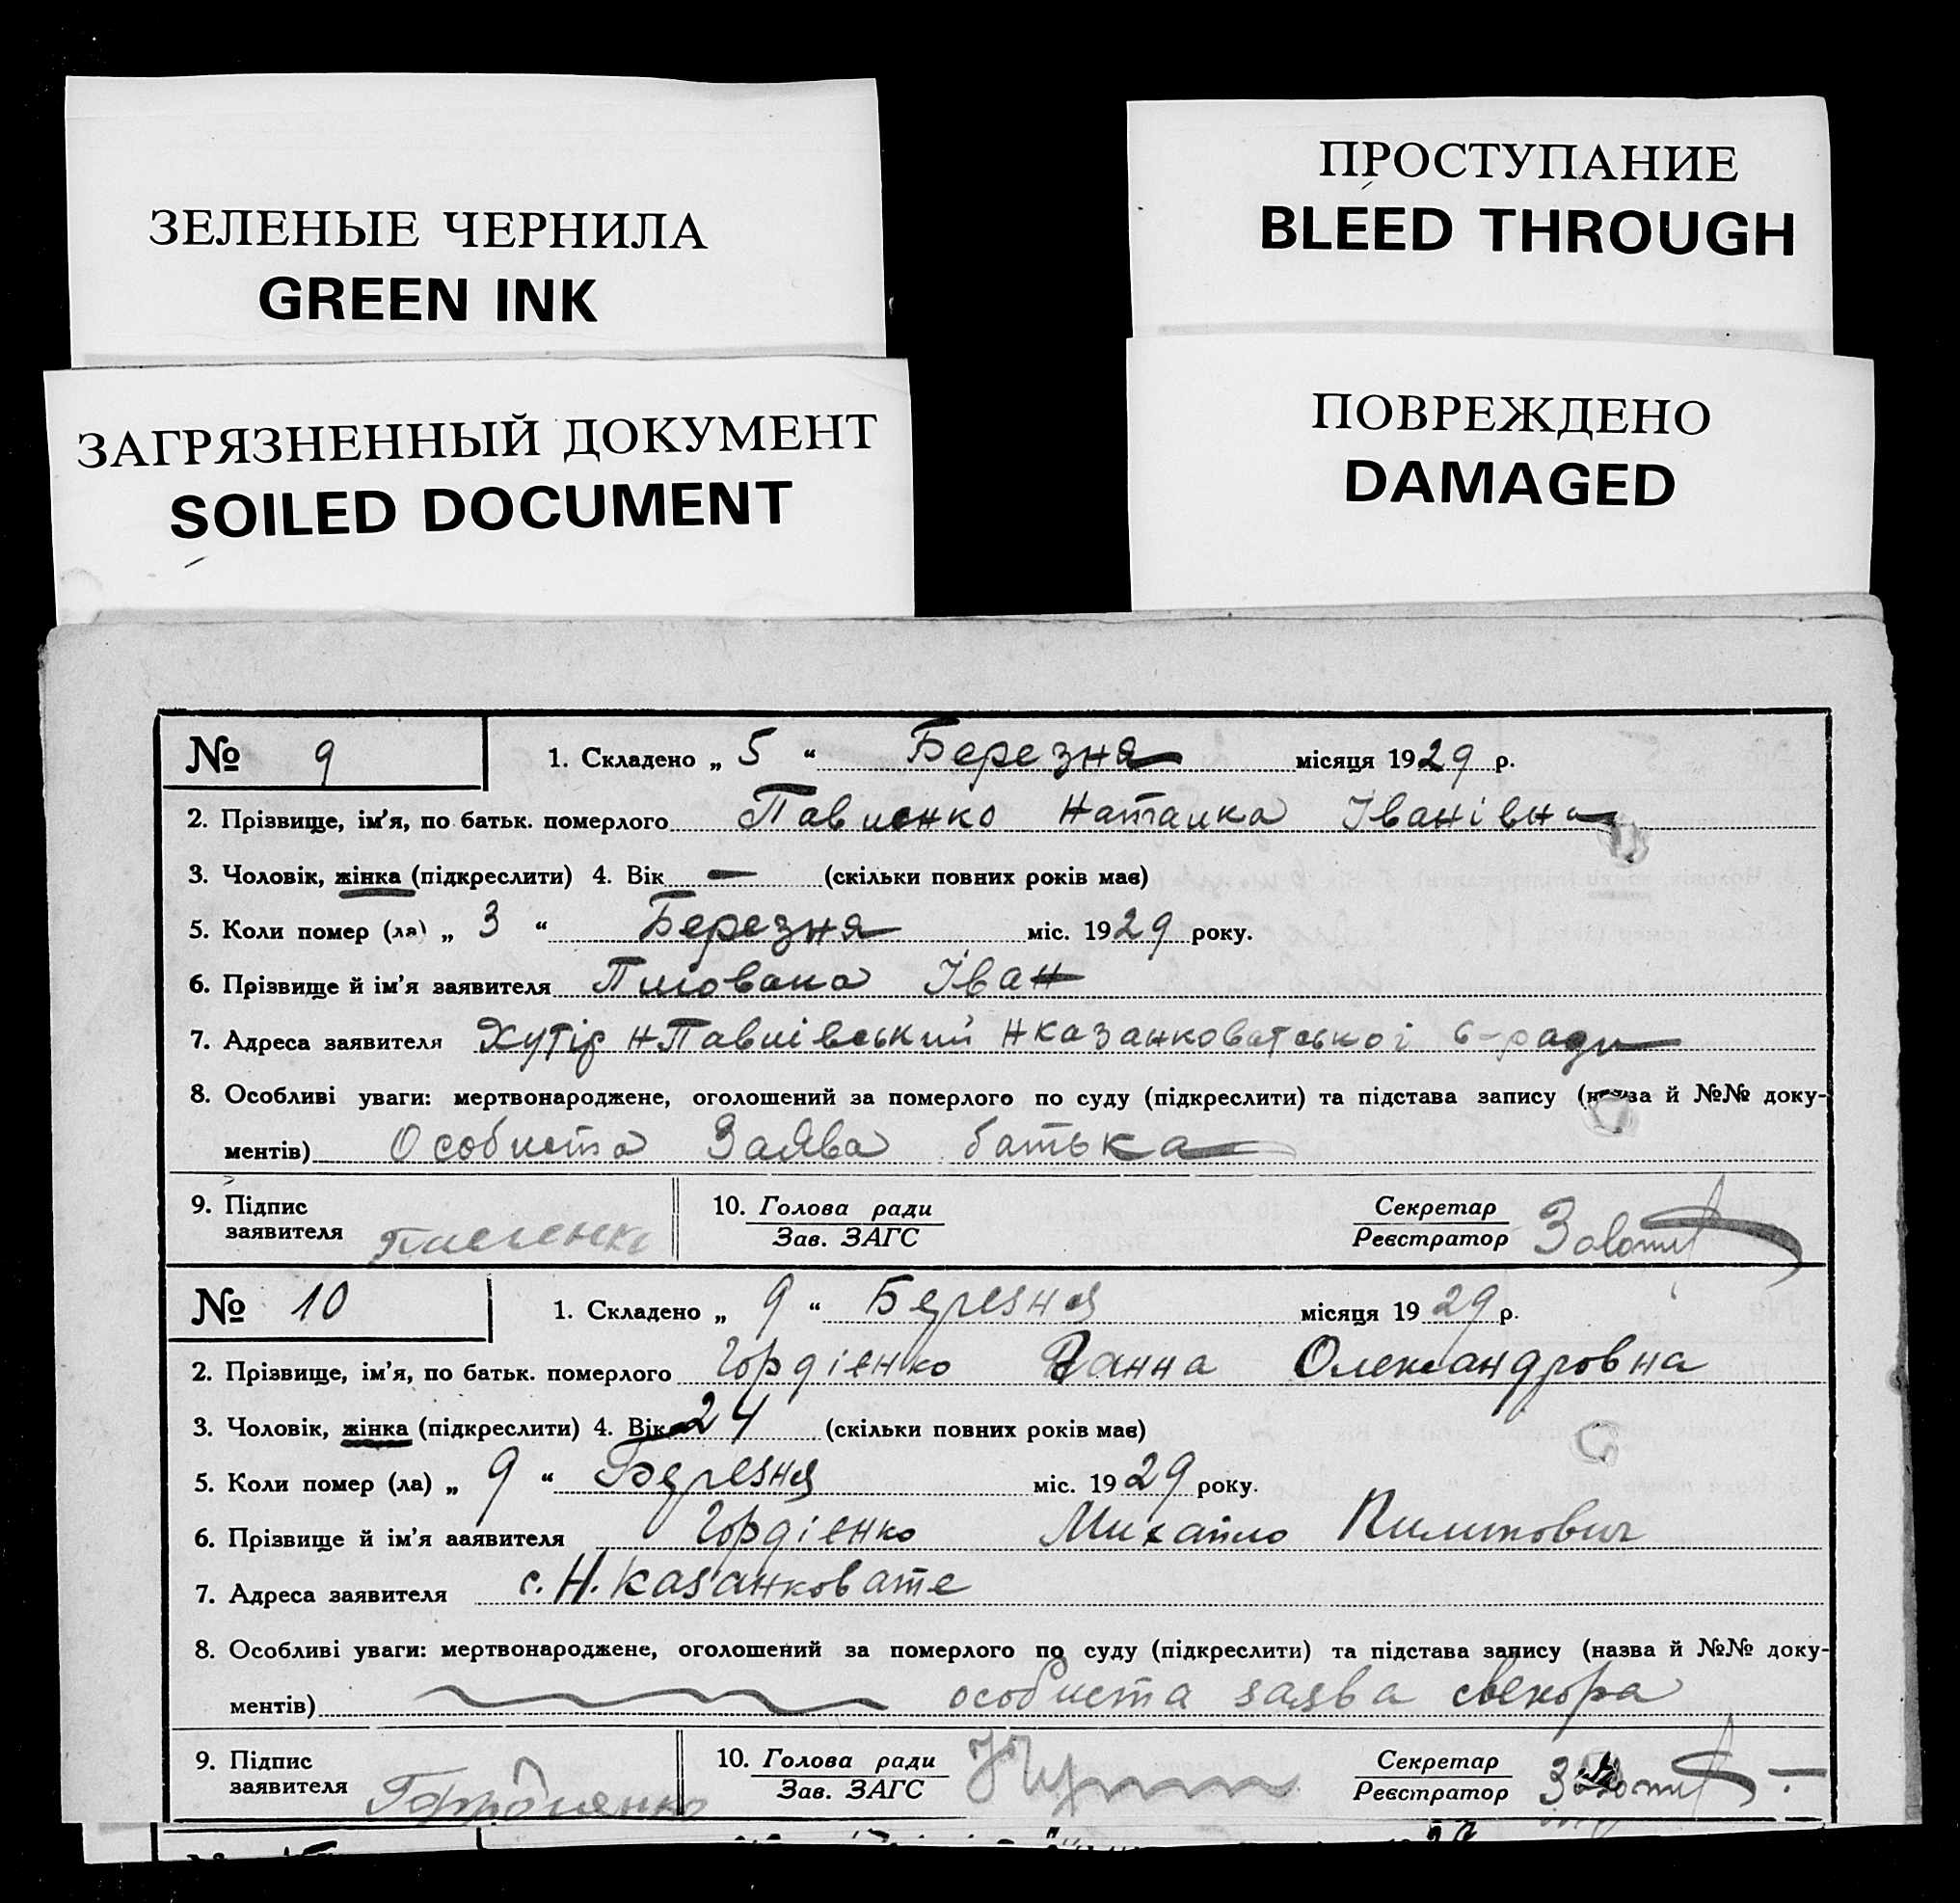 ЗЕЛЕНЫЕ ЧЕРНИЛА
GREEN INK
ПРОСТУПАНИЕ
BLEED THROUGH
ЗАГРЯЗНЕННЫЙ ДОКУМЕНТ
SOILED DOCUMENT
ПОВРЕЖДЕНО
DAMAGED
№ 9 1. Складено „ 5 “ Березня місяця 1929 р.
2. Прізвище, ім'я, по батьк. померлого Павленко Наталка Іванівна
3. Чоловік, жінка (підкреслити) 4. Вік — (скільки повних років має)
5. Коли помер (ла) „ 3 “ Березня міс. 1929 року.
6. Прізвище й ім'я заявителя Іван
7. Адреса заявителя Хутір Н Павлівський Н Казанковатської с-ради
8. Особливі уваги: мертвонароджене, оголошений за померлого по суду (підкреслити) та підстава запису (назва й №№ доку-
ментів) Особиста Заява батька
9. Підпис заявителя 10. Голова ради Секретар
Зав. ЗАГС Реєстратор
№ 10 1. Складено „ 9 “ Березня місяця 1929 р.
2. Прізвище, ім'я, по батьк. померлого Гордієнко Ганна Олександровна
3. Чоловік, жінка (підкреслити) 4. Вік 24 (скільки повних років має)
5. Коли помер (ла) „ 9 “ Березня міс. 1929 року.
6. Прізвище й ім'я заявителя Гордієнко Михайло Пилипович
7. Адреса заявителя с. Н. Казанковате
8. Особливі уваги: мертвонароджене, оголошений за померлого по суду (підкреслити) та підстава запису (назва й №№ доку-
ментів) особиста заява свекора
9. Підпис заявителя 10. Голова ради Секретар
Зав. ЗАГС Реєстратор